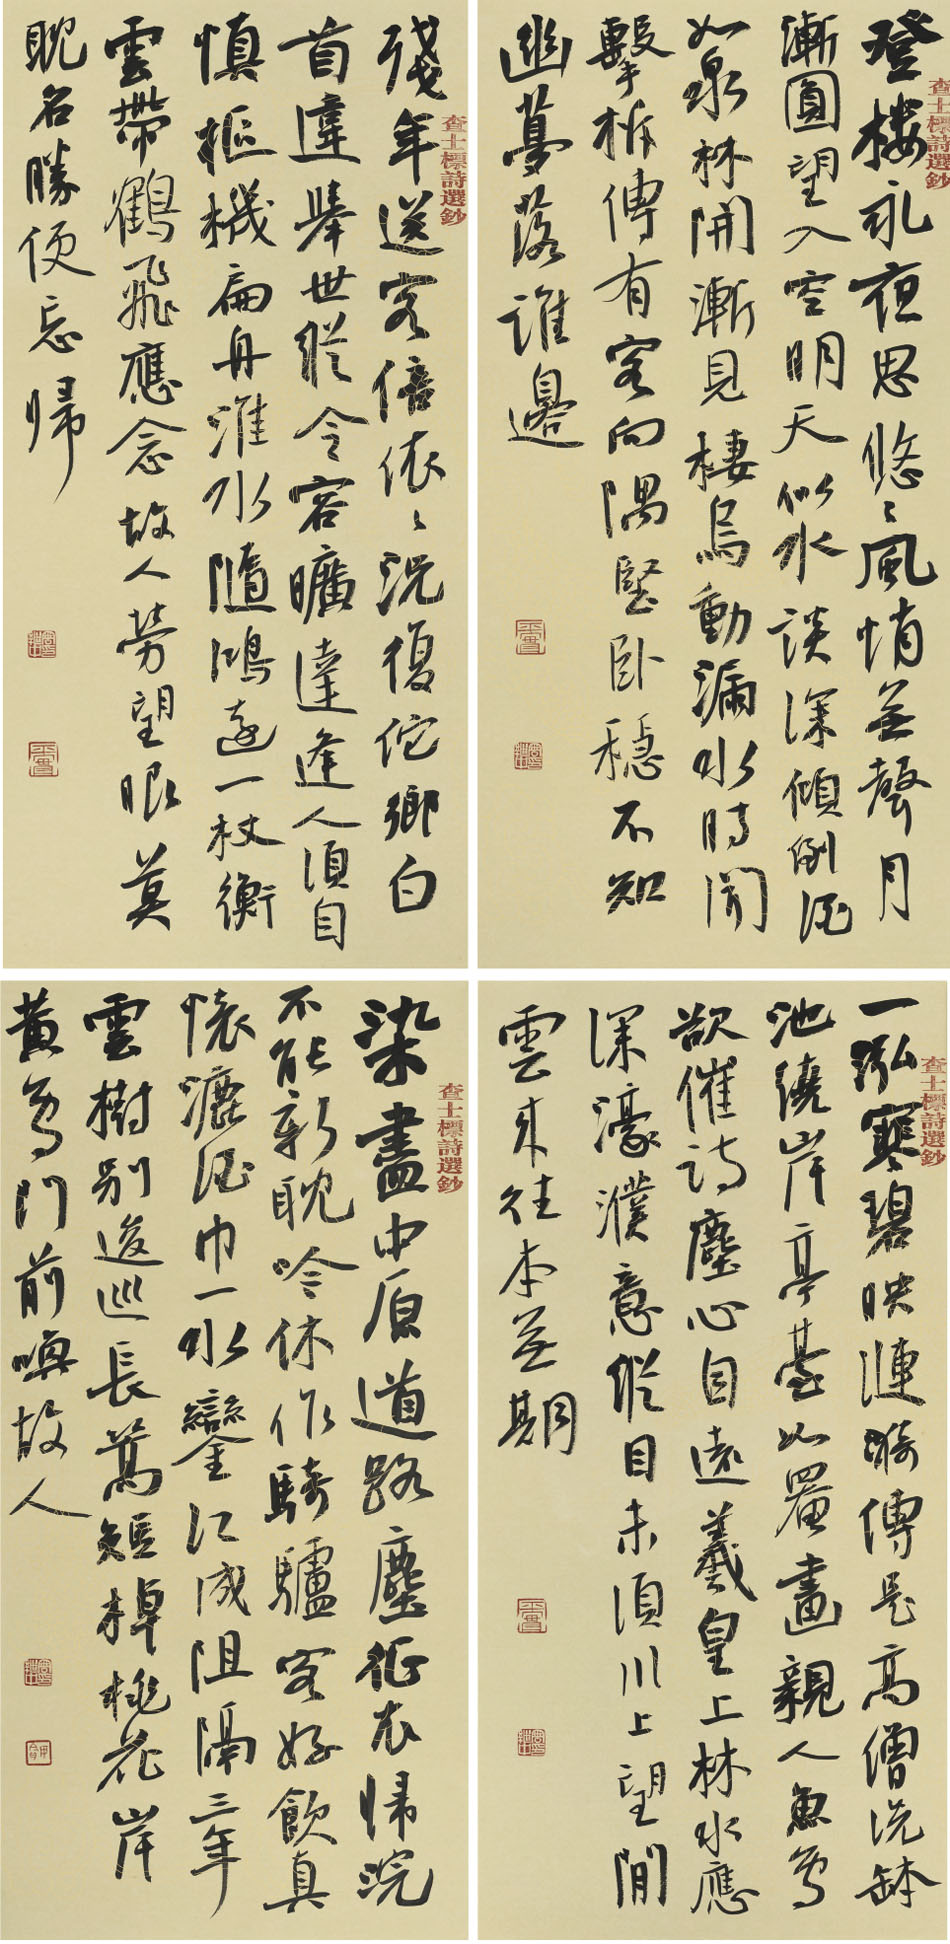 查士標詩選鈔
登樓永夜思悠〻風悄無聲月
漸圓望入空明天似水談深傾倒酒
如泉林開漸見棲烏動漏水時聞
擊柝傳有客向隅堅臥穩不知
幽夢落誰邊
查士標詩選鈔
殘年送客倍依〻況復佗鄉白
首違舉世縱令容曠達逢人須自
慎樞機扁舟淮水隨鴻遠一杖衡
雲帶鶴飛應念故人勞望眼莫
耽名勝便忘歸
查士標詩選鈔
一泓寒碧映漣漪傳是高僧洗缽
池繞岸亭臺如罨畫親人魚鳥
欲催詩塵心自遠羲皇上林水應
深濠濮意縱目未須川上望閒
雲來往本無期
查士標詩選鈔
染盡中原道路塵征衣歸浣
不能新耽吟休作騎驢客好飲真
懷漉酒巾一水鑾江成阻隔三年
雲樹別逡巡長篙短棹桃花岸
黃鳥門前喚故人